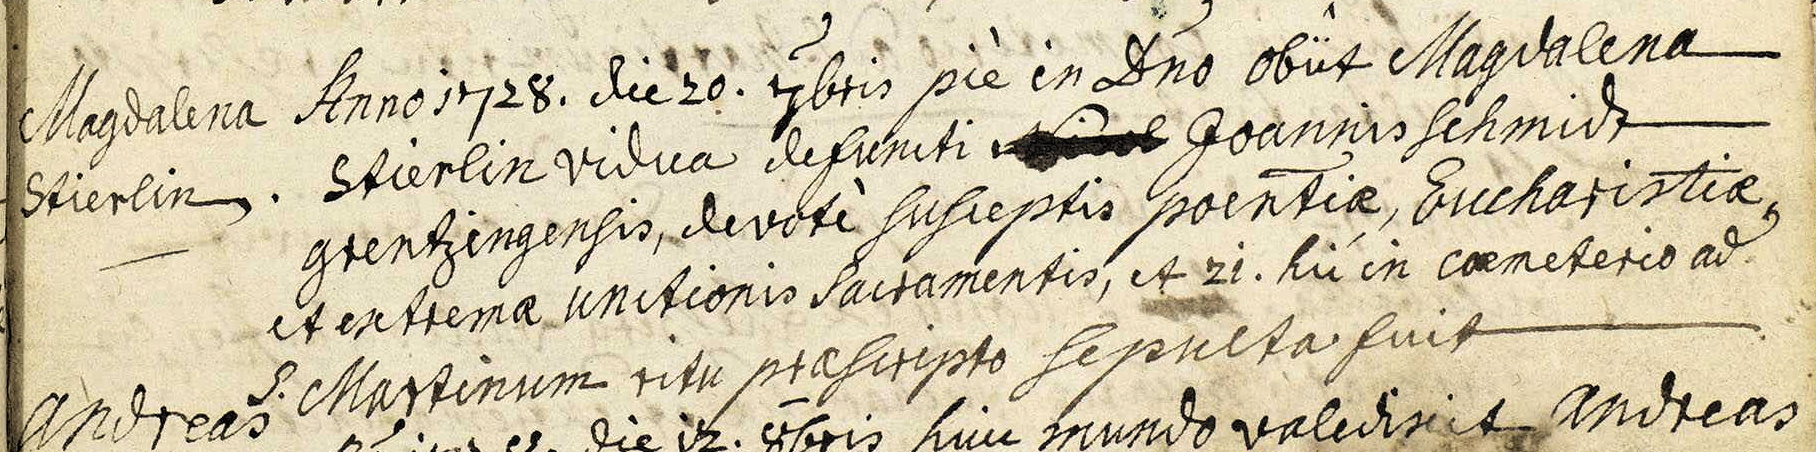 Magdalena
Stierlin.
Anno 1728. die 20. 7bris piè in Dno obiit Magdalena
Stierlin vidua defuncti Joannis Schmidt
grentzingensis, devotè susceptis poentiæ, Eucharistiæ,
et extremæ unctionis Sacramentis, et 21. hui in cœmeterio ad
S. Martinum ritu præscripto sepulta fuit
Andreas
die 12. 8bris huic mundo valedixit Andreas